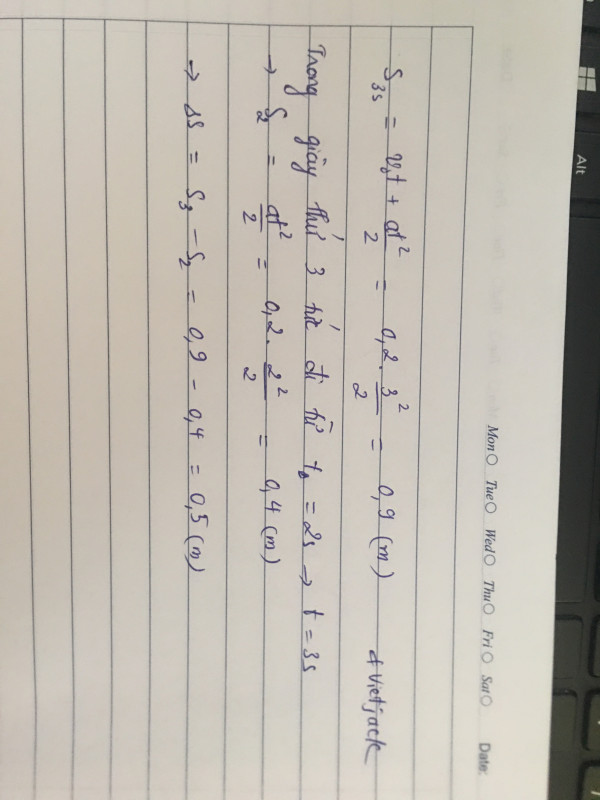 Alt
Mon Tue Wed Thu Fri Sat Date:
S₃ₛ = v₀t + at²/2 = 0,2 . 3²/2 = 0,9 (m)
Vietjack
Trong giây thứ 3 tức đi từ t₀ = 2s → t = 3s
→ S₂ = at²/2 = 0,2 . 2²/2 = 0,4 (m)
→ ΔS = S₃ - S₂ = 0,9 - 0,4 = 0,5 (m)